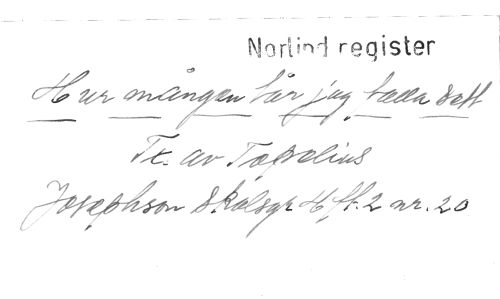 Norlind register
Hur mången tår jag fälla sett
Tx. av Topelius
Josephson Skolsgr H ft. 2 nr. 20